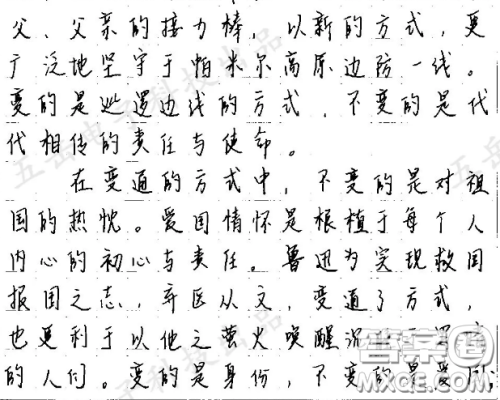 父、父亲的接力棒，以新的方式，更
广泛地坚守于帕米尔高原边防一线。
变的是巡逻边线的方式，不变的是代
代相传的责任与使命。
在变通的方式中，不变的是对祖
国的热忱。爱国情怀是根植于每个人
内心的初心与责任。鲁迅为实现救国
报国之志，弃医从文，变通了方式，
也更利于以他之萤火唤醒沉
的人们。变的是身份，不变的是爱国
答案圈
MXQE.COM